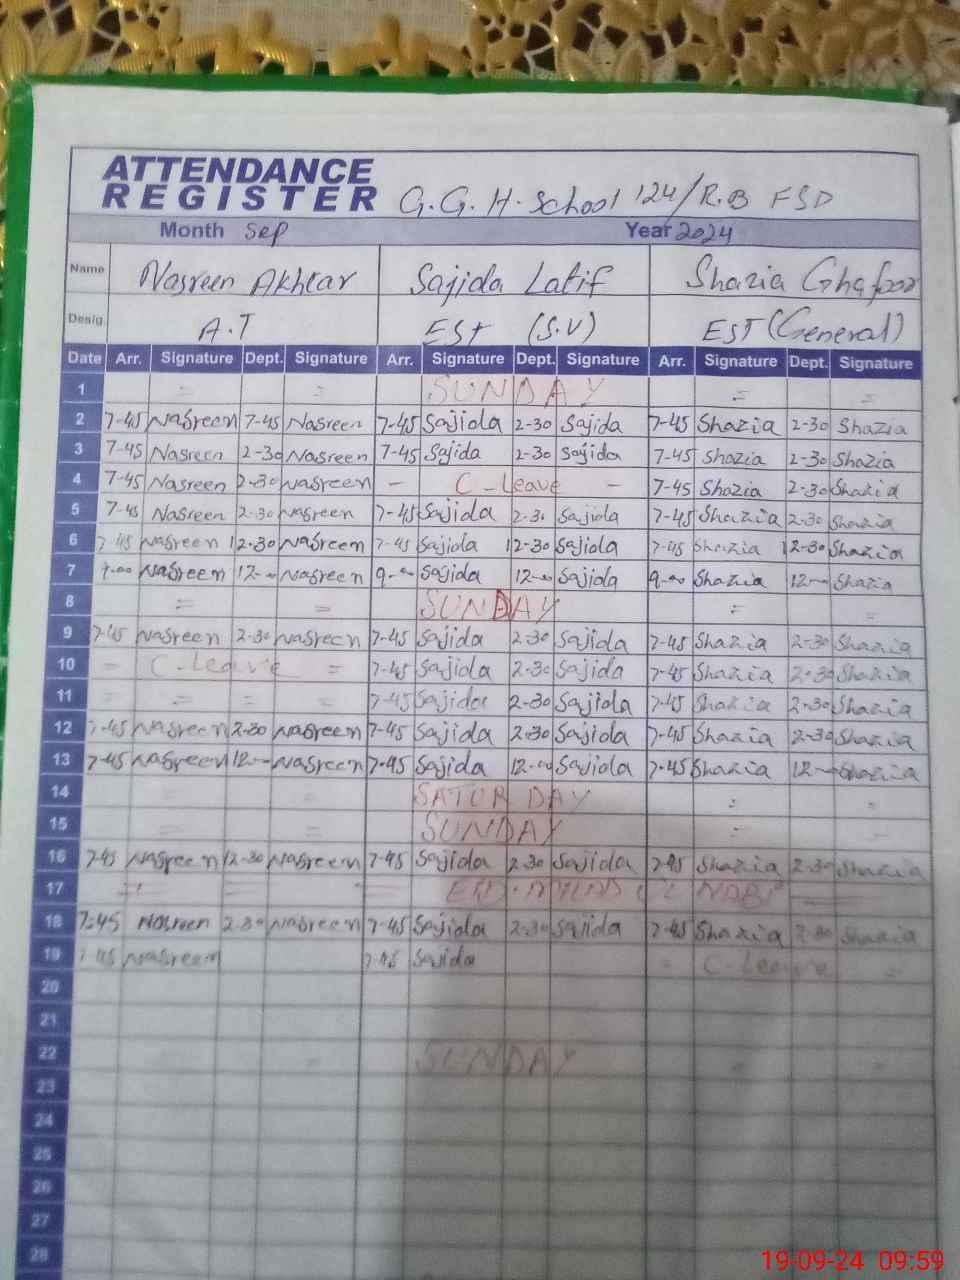 ATTENDANCE
REGISTER G.G.H.School 124/R.B FSD
Month Sep Year 2024
Name Nasreen Akhtar Sajida Latif Shazia Ghafoor
Desig. A.T EST (S.V) EST (General)
Date Arr. Signature Dept. Signature Arr. Signature Dept. Signature Arr. Signature Dept. Signature
1 = = SUNDAY = =
2 7-45 Nasreen 7-45 Nasreen 7-45 Sajida 2-30 Sajida 7-45 Shazia 2-30 Shazia
3 7-45 Nasreen 2-30 Nasreen 7-45 Sajida 2-30 Sajida 7-45 Shazia 2-30 Shazia
4 7-45 Nasreen 2-30 Nasreen - C-Leave - 7-45 Shazia 2-30 Shazia
5 7-45 Nasreen 2-30 Nasreen 7-45 Sajida 2-30 Sajida 7-45 Shazia 2-30 Shazia
6 7-45 Nasreen 12-30 Nasreen 7-45 Sajida 12-30 Sajida 7-45 Shazia 12-30 Shazia
7 9-00 Nasreen 12-00 Nasreen 9-00 Sajida 12-00 Sajida 9-00 Shazia 12-00 Shazia
8 = = SUNDAY = =
9 7-45 Nasreen 2-30 Nasreen 7-45 Sajida 2-30 Sajida 7-45 Shazia 2-30 Shazia
10 = C-Leave = 7-45 Sajida 2-30 Sajida 7-45 Shazia 2-30 Shazia
11 = = = = 7-45 Sajida 2-30 Sajida 7-45 Shazia 2-30 Shazia
12 7-45 Nasreen 2-30 Nasreen 7-45 Sajida 2-30 Sajida 7-45 Shazia 2-30 Shazia
13 7-45 Nasreen 12-00 Nasreen 7-45 Sajida 12-00 Sajida 7-45 Shazia 12-00 Shazia
14 = = SATURDAY = =
15 = = SUNDAY = -
16 7-45 Nasreen 12-30 Nasreen 7-45 Sajida 2-30 Sajida 7-45 Shazia 2-30 Shazia
17 = = = NABI =
18 7:45 Nasreen 2-30 Nasreen 7-45 Sajida 2-30 Sajida 7-45 Shazia 2-30 Shazia
19 7-45 Nasreen 7-45 Sajida = C-Leave =
20
21
22 = SUNDAY = =
23
24
25
26
27
28
19-09-24 09:59